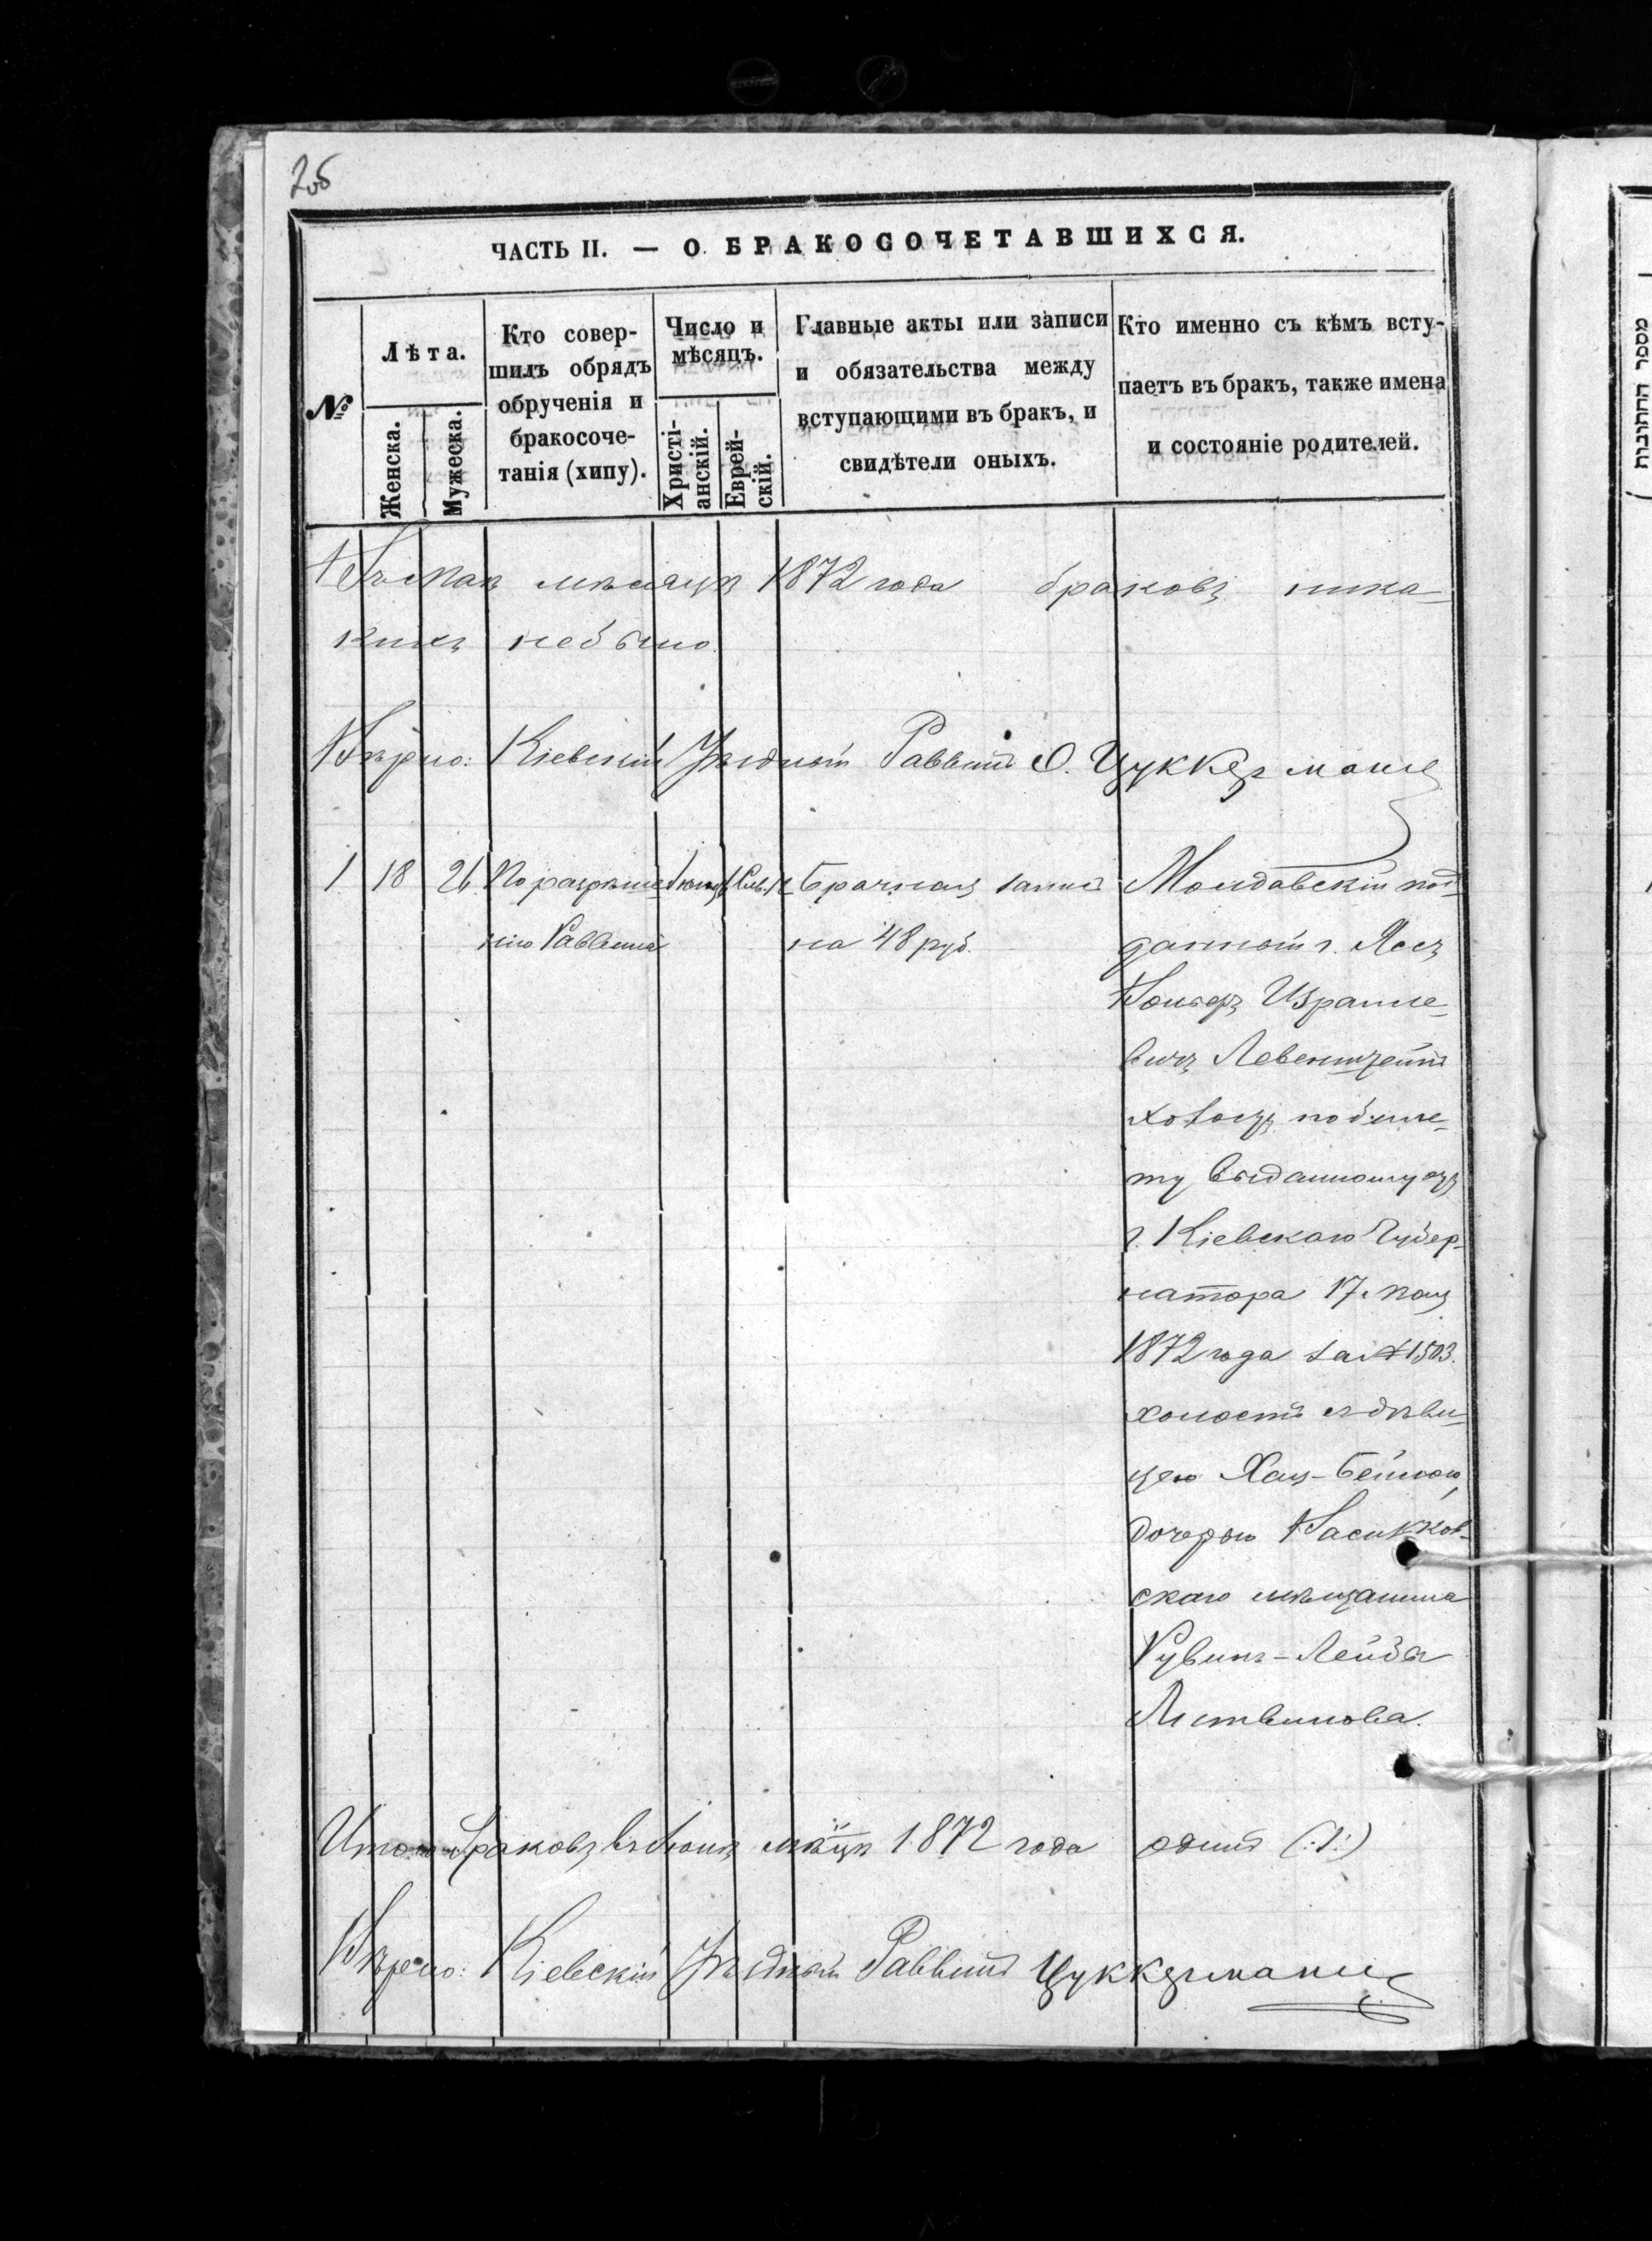 ЧАСТЬ II. — О БРАКОСОЧЕТАВШИХСЯ.
№
Лѣта.
Женска.
Мужеска.
Кто совер-
шилъ обрядъ
обрученія и
бракосоче-
танія (хипу).
Число и
мѣсяцъ.
Христі-
анскій.
Еврей-
скій.
Главные акты или записи
и обязательства между
вступающими въ бракъ, и
свидѣтели оныхъ.
Кто именно съ кѣмъ всту-
паетъ въ бракъ, также имена
и состояніе родителей.
Въ маѣ мѣсяцѣ 1872 года браковъ ника-
кихъ небыло.
Вѣрно: Кіевскій Уѣздный Раввинъ О. Цуккерманъ
1 18 26 По разрѣше-
нію Раввина
Брачная запись
на 48 руб.
Молдавскій под-
данный г. Яссъ
Израиле-
вичъ Левенштейнъ
по биле-
ту выданному отъ
г. Кіевскаго Губер-
натора 17 мая
1872 года за № 1503.
холостъ съ дѣви-
цею Хая-Бейлою,
дочерью Васильков-
скаго мѣщанина
Рувинъ-Лейбы
Литвинова.
Итого браковъ въ Іюнѣ мѣ-цѣ 1872 года одинъ (:1:)
Вѣрно: Кіевскій Уѣздный Раввинъ Цуккерманъ
מספר החתונות